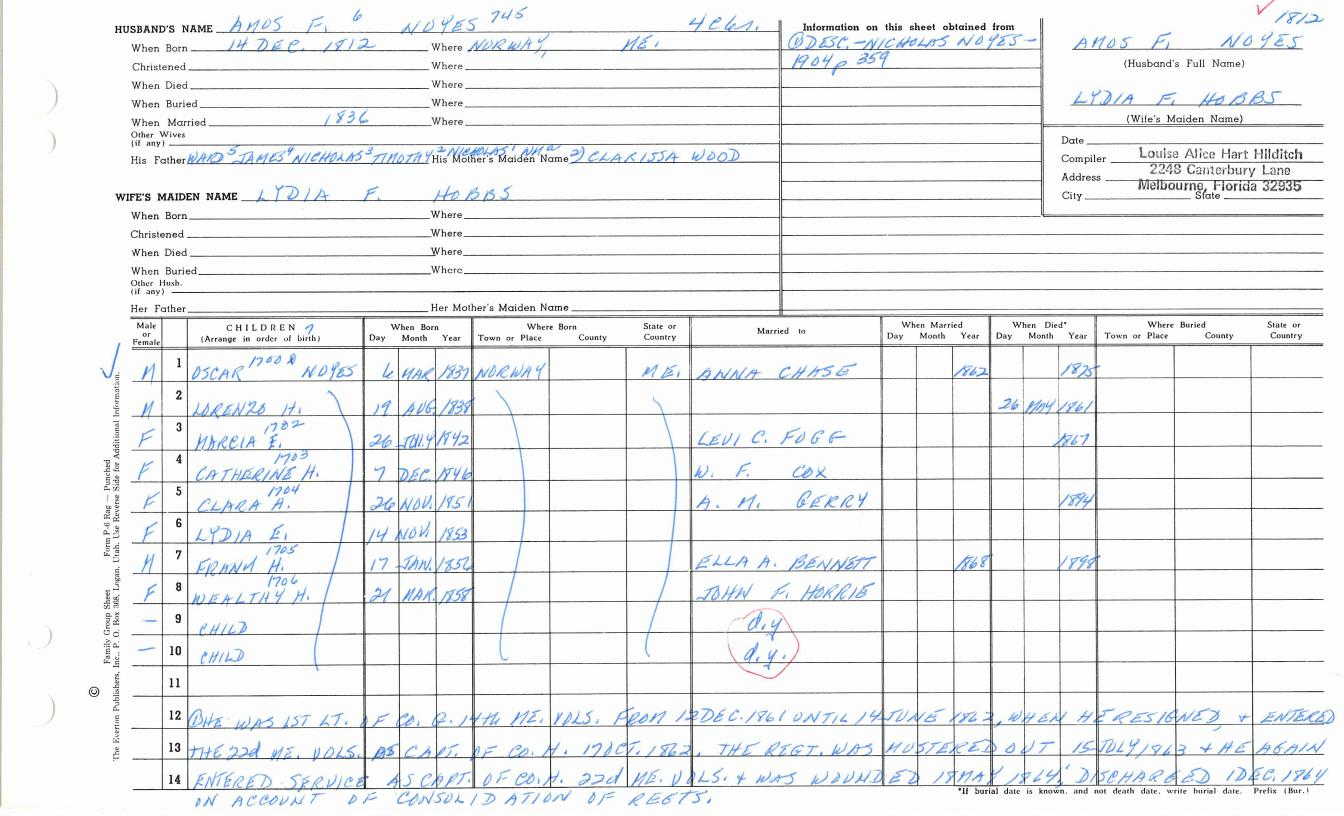 1812
HUSBAND'S NAME AMOS F. 6 NOYES 745 4 Chn.
When Born 14 DEC. 1812 Where NORWAY, ME.
Christened Where
When Died Where
When Buried Where
When Married 1836 Where
Other Wives
(if any)
His Father WARD 5 JAMES 4 NICHOLAS 3 TIMOTHY 2 NICHOLAS 1 His Mother's Maiden Name 2) CLARISSA WOOD
WIFE'S MAIDEN NAME LYDIA F. HOBBS
When Born Where
Christened Where
When Died Where
When Buried Where
Other Husb.
(if any)
Her Father Her Mother's Maiden Name
Information on this sheet obtained from
① DESC. - NICHOLAS NOYES -
1904 p 359
AMOS F. NOYES
(Husband's Full Name)
LYDIA F. HOBBS
(Wife's Maiden Name)
Date
Compiler Louise Alice Hart Hilditch
Address 2248 Canterbury Lane
City Melbourne, Florida 32935 State
Male or Female CHILDREN 7 (Arrange in order of birth) When Born Day Month Year Where Born Town or Place County State or Country Married to When Married Day Month Year When Died* Day Month Year Where Buried Town or Place County State or Country
M 1 OSCAR 1700 NOYES 6 MAR 1837 NORWAY ME. ANNA CHASE 1862 1875
M 2 LORENZO H. 19 AUG. 1838 26 MAY 1861
F 3 MARCIA E. 1702 26 JULY 1842 LEVI C. FOGG 1867
F 4 CATHERINE H. 1703 7 DEC. 1846 W. F. COX
F 5 CLARA A. 1704 26 NOV. 1851 A. M. GERRY 1894
F 6 LYDIA E. 14 NOV. 1853
M 7 FRANK H. 1705 17 JAN. 1856 ELLA A. BENNETT 1868 1898
F 8 WEALTHY H. 1706 21 MAR. 1858 JOHN F. HORRIE
- 9 CHILD d.y
- 10 CHILD d.y.
11
12 ① HE WAS 1ST LT. OF CO. G. 14th ME. VOLS. FROM 12 DEC. 1861 UNTIL 14 JUNE 1862, WHEN HE RESIGNED, + ENTERED
13 THE 22d ME. VOLS. AS CAPT. OF CO. H. 17 OCT. 1862. THE REGT. WAS MUSTERED OUT 15 JULY, 1863 + HE AGAIN
14 ENTERED SERVICE AS CAPT. OF CO. H. 22d ME. VOLS. + WAS WOUNDED 18 MAY 1864; DISCHARGED 1 DEC. 1864
ON ACCOUNT OF CONSOLIDATION OF REGTS.
*If burial date is known, and not death date, write burial date. Prefix (Bur.)
Family Group Sheet Form P-6 Rag — Punched
© The Everton Publishers, Inc., P. O. Box 368, Logan, Utah. Use Reverse Side for Additional Information.